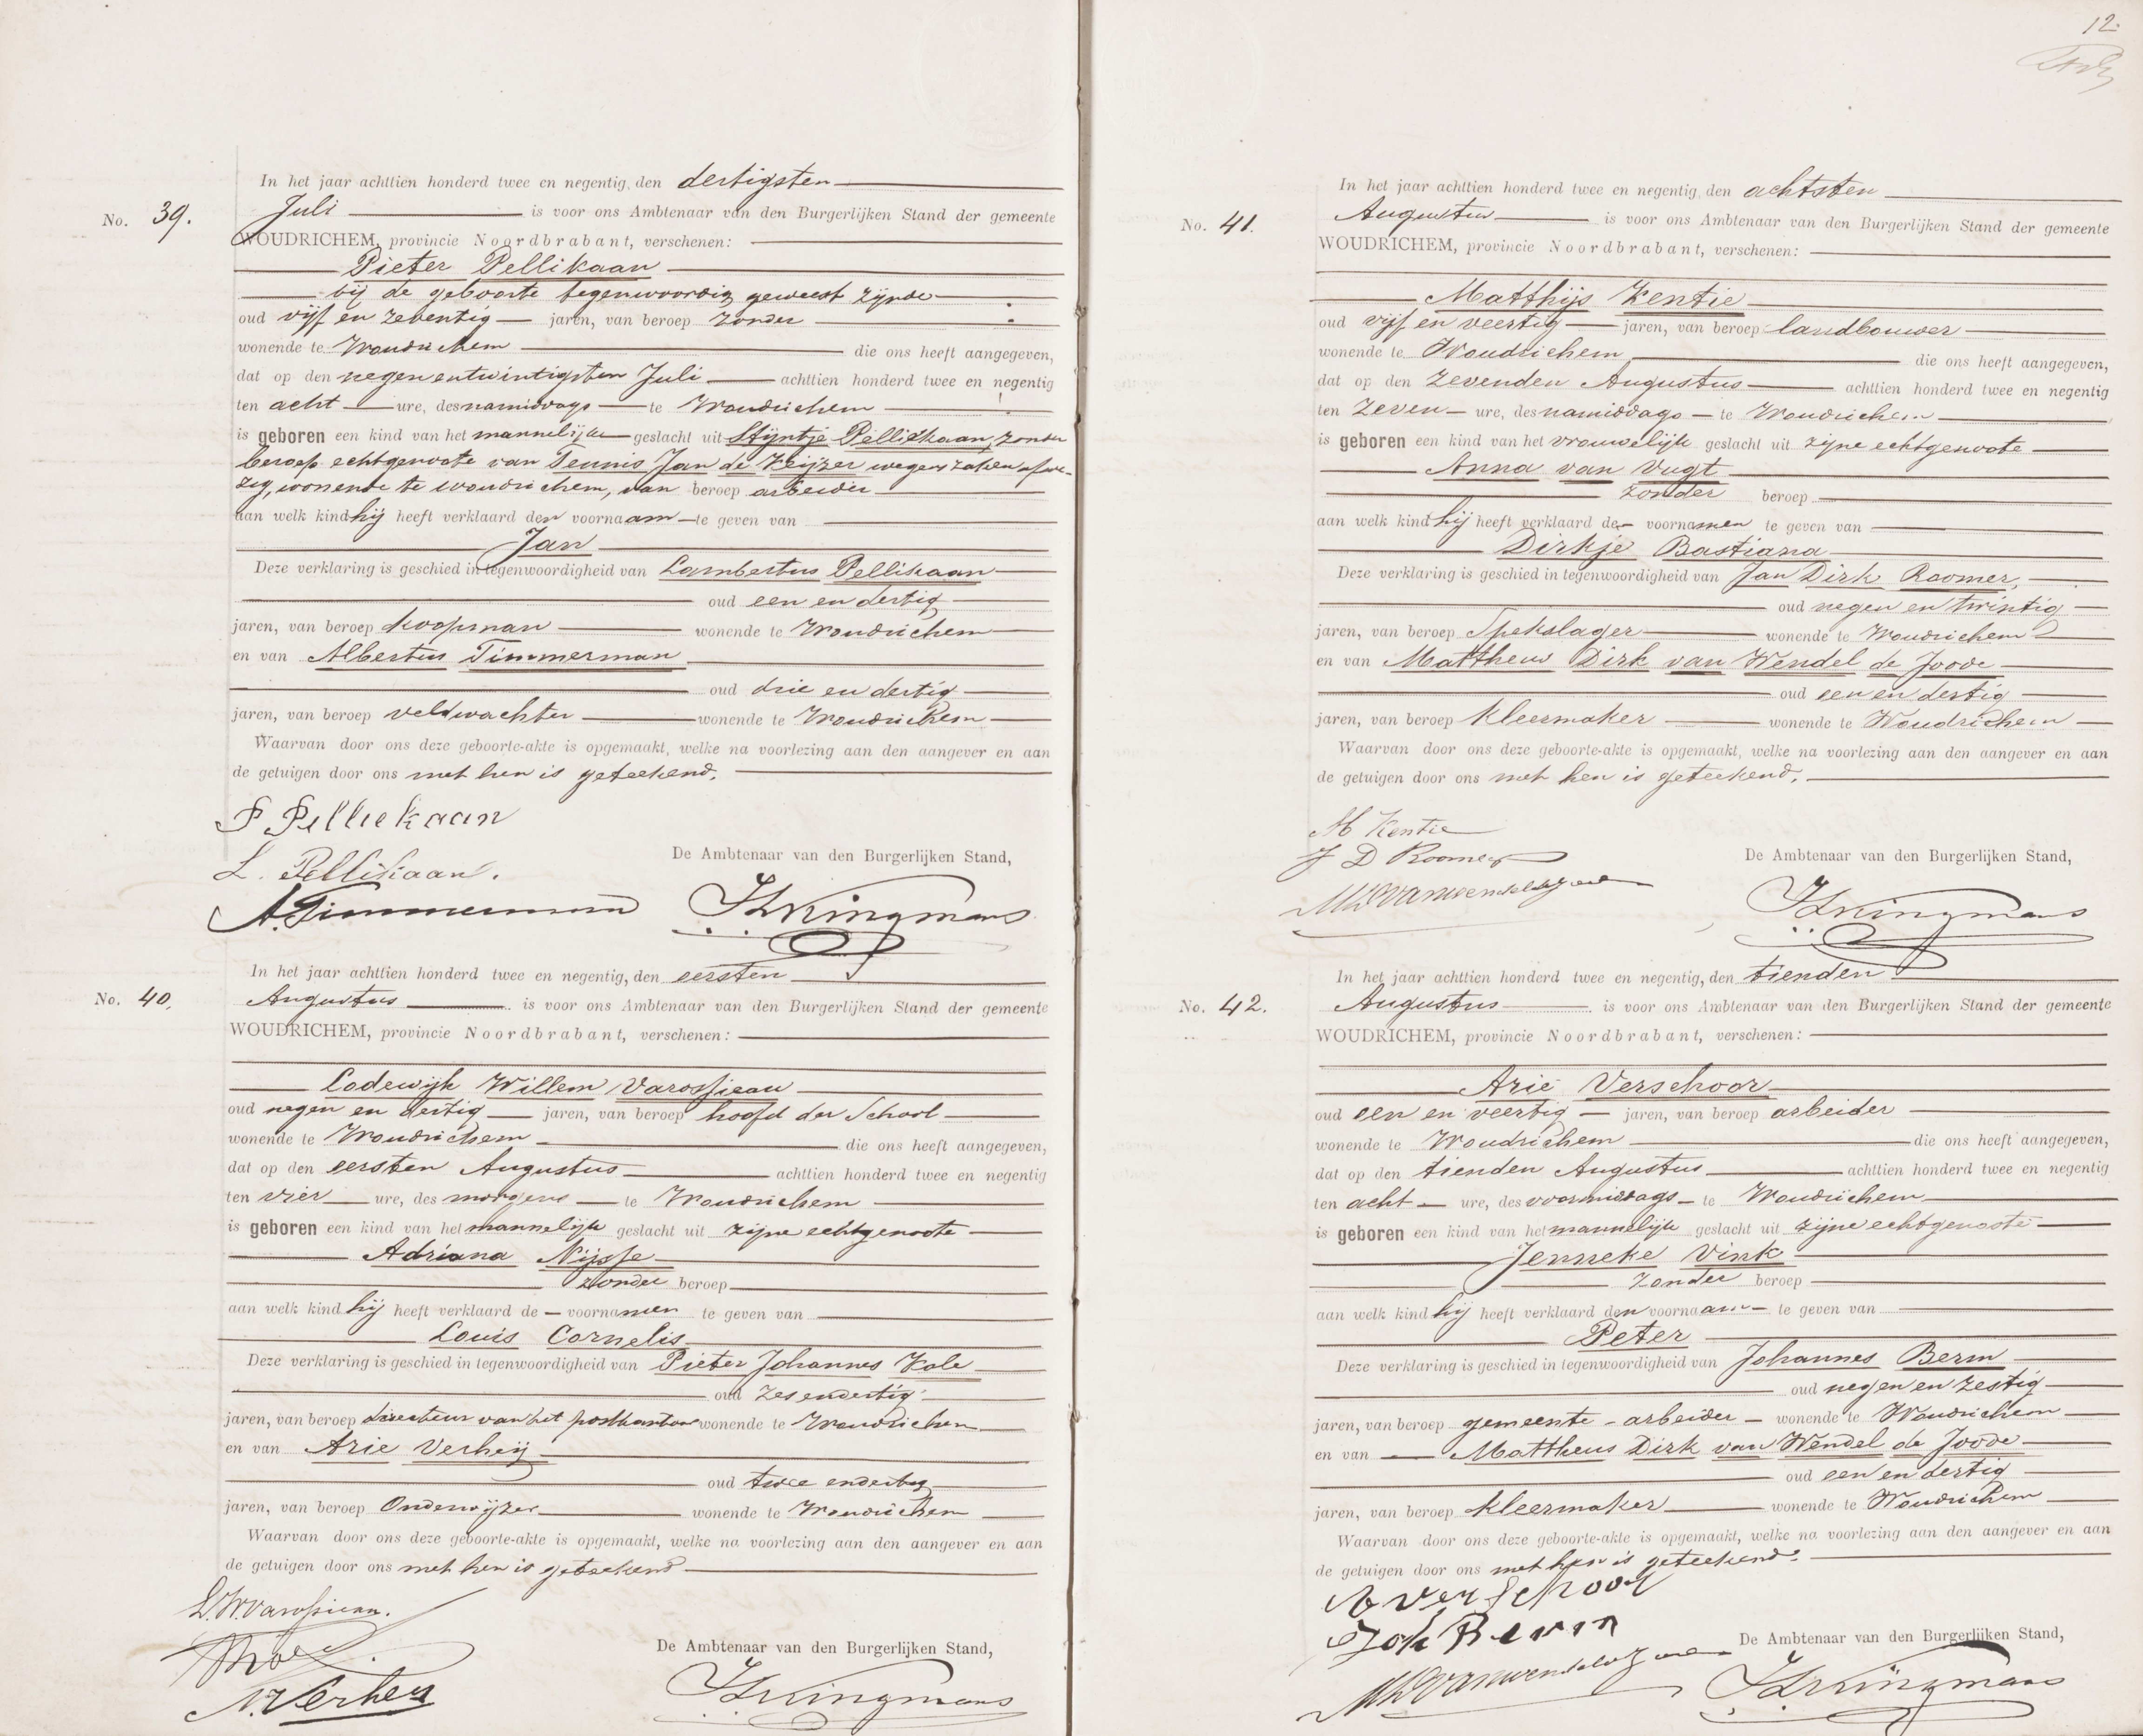 12.
In het jaar achttien honderd twee en negentig, den dertigsten
No. 39. Juli is voor ons Ambtenaar van den Burgerlijken Stand der gemeente
WOUDRICHEM, provincie Noordbrabant, verschenen:
Pieter Pellikaan
bij de geboorte tegenwoordig geweest zijnde
oud vijf en zeventig jaren, van beroep zonder
wonende te Woudrichem die ons heeft aangegeven,
dat op den negenentwintigsten Juli achttien honderd twee en negentig
ten acht ure, des namiddags te Woudrichem
is geboren een kind van het mannelijke geslacht uit Stijntje Pellikaan, zonder
beroep echtgenoote van Teunis Jan de Keijzer wegens zaken afwe-
zig, wonende te Woudrichem, van beroep arbeider
aan welk kind hij heeft verklaard den voornaam te geven van
Jan
Deze verklaring is geschied in tegenwoordigheid van Lambertus Pellikaan
oud een en dertig
jaren, van beroep koopman wonende te Woudrichem
en van Albertus Timmerman
oud drie en dertig
jaren, van beroep veldwachter wonende te Woudrichem
Waarvan door ons deze geboorte-akte is opgemaakt, welke na voorlezing aan den aangever en aan
de getuigen door ons met hen is geteekend.
P Pelliekaan
L. Pellikaan.
De Ambtenaar van den Burgerlijken Stand,
A. Timmerman
In het jaar achttien honderd twee en negentig, den eersten
No. 40. Augustus is voor ons Ambtenaar van den Burgerlijken Stand der gemeente
WOUDRICHEM, provincie Noordbrabant, verschenen:
Lodewijk Willem Varossieau
oud negen en dertig jaren, van beroep hoofd der School
wonende te Woudrichem die ons heeft aangegeven,
dat op den eersten Augustus achttien honderd twee en negentig
ten vier ure, des morgens te Woudrichem
is geboren een kind van het mannelijke geslacht uit zijne echtgenoote
Adriana Nijsse
zonder beroep
aan welk kind hij heeft verklaard de voornamen te geven van
Louis Cornelis
Deze verklaring is geschied in tegenwoordigheid van Pieter Johannes Kole
oud zesendertig
jaren, van beroep directeur van het postkantoor wonende te Woudrichem
en van Arie Verheij
oud twee endertig
jaren, van beroep Onderwijzer wonende te Woudrichem
Waarvan door ons deze geboorte-akte is opgemaakt, welke na voorlezing aan den aangever en aan
de getuigen door ons met hen is geteekend
L.W. Varossieau.
De Ambtenaar van den Burgerlijken Stand,
A. Verheij
In het jaar achttien honderd twee en negentig, den achtsten
No. 41. Augustus is voor ons Ambtenaar van den Burgerlijken Stand der gemeente
WOUDRICHEM, provincie Noordbrabant, verschenen:
Matthijs Kentie
oud vijf en veertig jaren, van beroep landbouwer
wonende te Woudrichem die ons heeft aangegeven,
dat op den zevenden Augustus achttien honderd twee en negentig
ten zeven ure, des namiddags te Woudrichem
is geboren een kind van het vrouwelijk geslacht uit zijne echtgenoote
Anna van Vugt
zonder beroep
aan welk kind hij heeft verklaard de voornamen te geven van
Dirkje Bastiana
Deze verklaring is geschied in tegenwoordigheid van Jan Dirk Roomer,
oud negen en twintig
jaren, van beroep Spekslager wonende te Woudrichem
en van Mattheus Dirk van Wendel de Joode
oud een en dertig
jaren, van beroep kleermaker wonende te Woudrichem
Waarvan door ons deze geboorte-akte is opgemaakt, welke na voorlezing aan den aangever en aan
de getuigen door ons met hen is geteekend.
M Kentie
J D Roomer
De Ambtenaar van den Burgerlijken Stand,
In het jaar achttien honderd twee en negentig, den tienden
No. 42. Augustus is voor ons Ambtenaar van den Burgerlijken Stand der gemeente
WOUDRICHEM, provincie Noordbrabant, verschenen:
Arie Verschoor
oud een en veertig jaren, van beroep arbeider
wonende te Woudrichem die ons heeft aangegeven,
dat op den tienden Augustus achttien honderd twee en negentig
ten acht ure, des voormiddags te Woudrichem
is geboren een kind van het mannelijk geslacht uit zijne echtgenoote
Jenneke Vink
zonder beroep
aan welk kind hij heeft verklaard den voornaam te geven van
Peter
Deze verklaring is geschied in tegenwoordigheid van Johannes Berm
oud negen en zestig
jaren, van beroep gemeente-arbeider wonende te Woudrichem
en van Mattheus Dirk van Wendel de Joode
oud een en dertig
jaren, van beroep kleermaker wonende te Woudrichem
Waarvan door ons deze geboorte-akte is opgemaakt, welke na voorlezing aan den aangever en aan
de getuigen door ons met hen is geteekend.
A Verschoor
Joh Berm
De Ambtenaar van den Burgerlijken Stand,